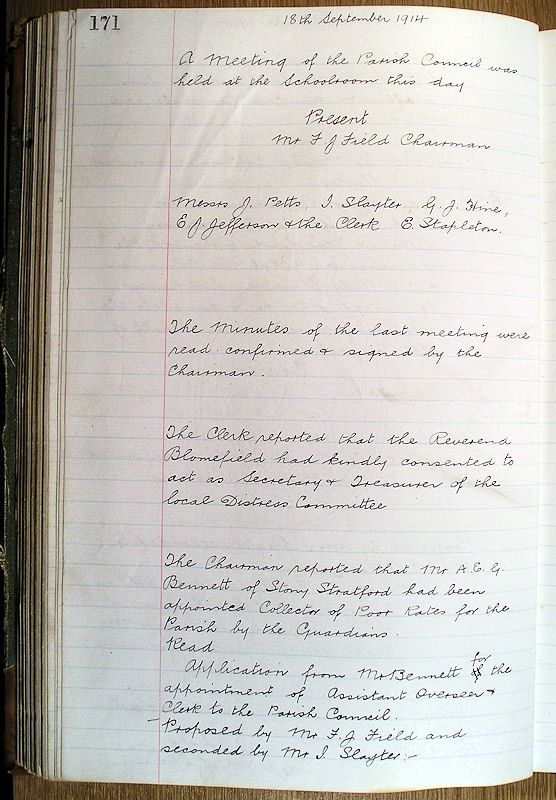 171
18th September 1914
A Meeting of the Parish Council was
held at the Schoolroom this day
Present
Mr F. J Field Chairman
Messrs J. Petts, I. Slayter, G. J. Hine,
E J. Jefferson & the Clerk E. Stapleton.
The Minutes of the last meeting were
read confirmed & signed by the
Chairman.
The Clerk reported that the Reverend
Blomefield had kindly consented to
act as Secretary & Treasurer of the
local Distress Committee
The Chairman reported that Mr A. E. G.
Bennett of Stony Stratford had been
appointed Collector of Poor Rates for the
Parish by the Guardians.
Read
Application from Mr Bennett for the
appointment of Assistant Overseer &
Clerk to the Parish Council.
Proposed by Mr F. J Field and
seconded by Mr I. Slayter:-